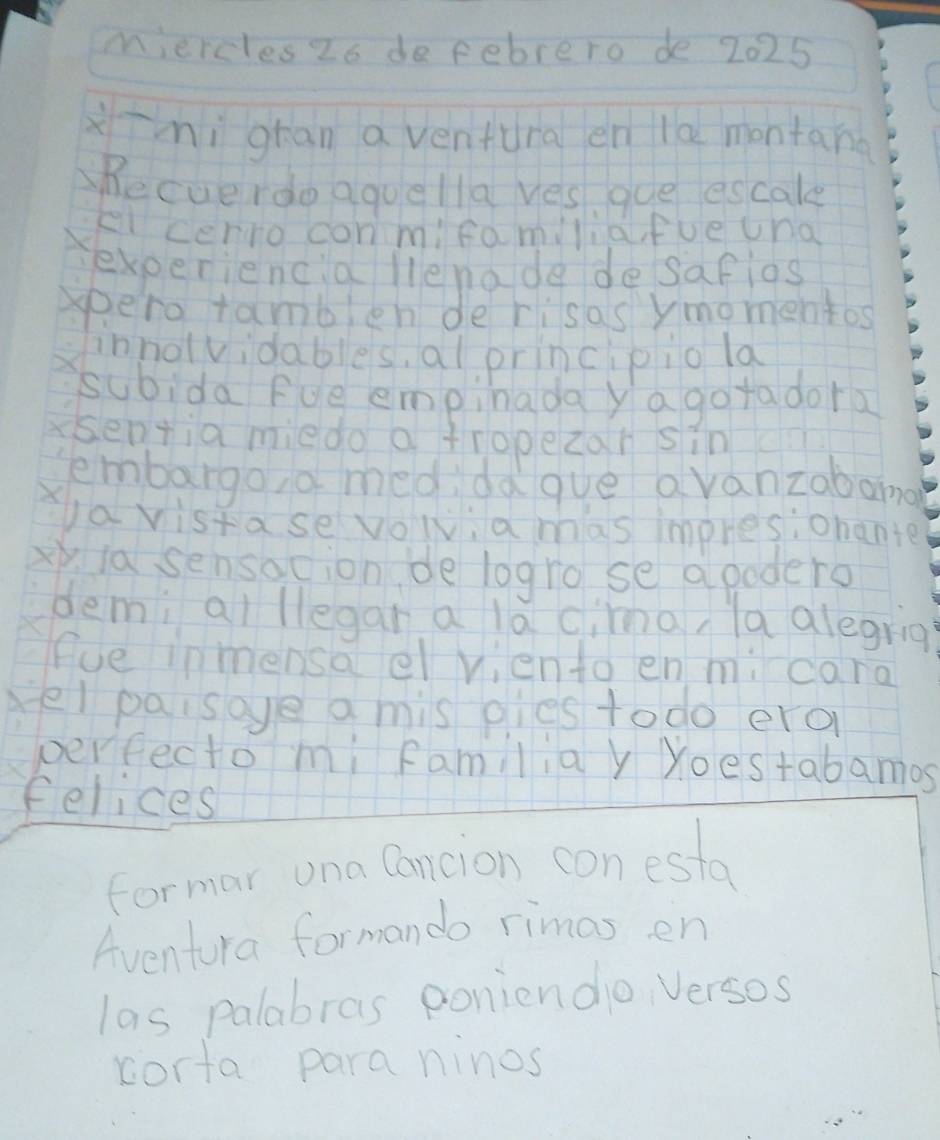 miercles 26 de febrero de 2025
x-mi gran aventura en la montana
xRecuerdo aquella ves que escale
x el cerro con mi familia, fue una
experiencia llena de de safios
xpero tambien de risas y momentos
x innolvidables, al principio la
subida fue empinada y agotadora
xsentia miedo a tropezar sin
embargo, a medida que avanzabamos
x la vista se volvia mas impresionante
xy la sensacion de logro se apodero
x de mi al llegar a la cima, la alegria
fue inmensa el viento en mi cara
xel paisaje a mis pies todo era
perfecto mi familia y yo estabamos
felices
formar una Cancion con esta
Aventura formando rimas en
las palabras poniendo versos
corta para ninos